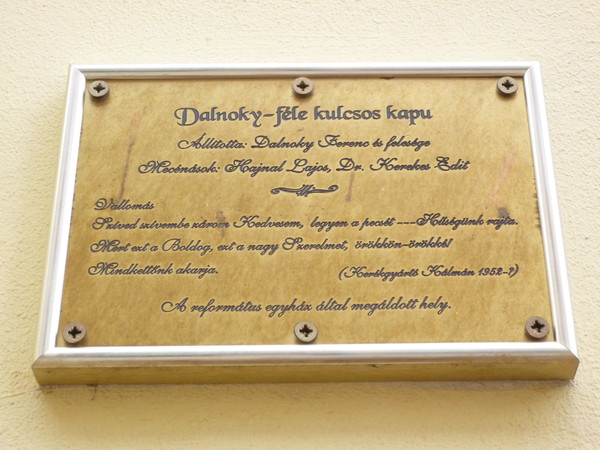 Dalnoky-féle kulcsos kapu
Állította: Dalnoky Ferenc és felesége
Mecénások: Hajnal Lajos, Dr. Kerekes Edit
Vallomás
Szíved szívembe zárom Kedvesem, legyen a pecsét ---Hűségünk rajta.
Mert ezt a Boldog, ezt a nagy Szerelmet, örökkön-örökké!
Mindkettőnk akarja. (Kerékgyártó Kálmán 1952-?)
A református egyház által megáldott hely.